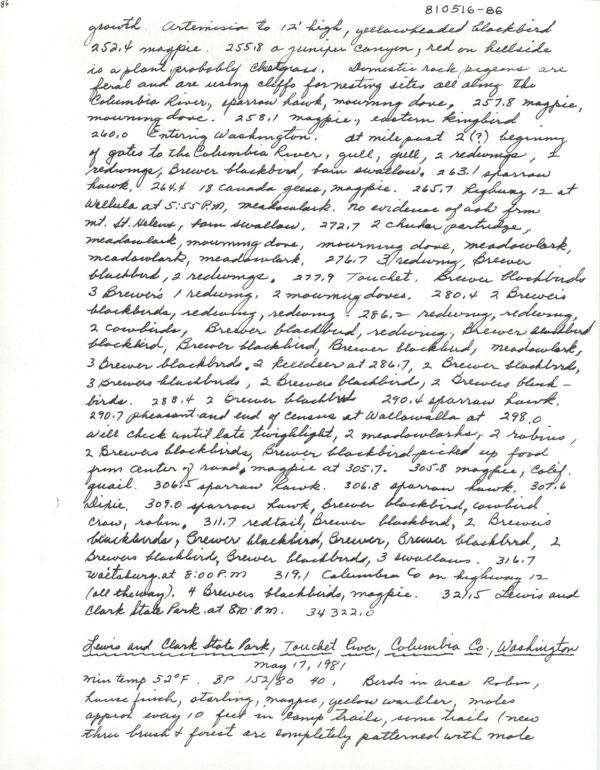 86
810516-86
growth Artemisia to 12' high, yellowheaded blackbird
252.4 magpie. 255.8 a juniper canyon, red on hillside
is a plant, probably cheatgrass. Domestic rock pigeons are
feral and are using cliffs for nesting sites all along the
Columbia River, sparrow hawk, mourning dove, 257.8 magpie,
mourning dove. 258.1 magpie, eastern kingbird
260.0 Entering Washington. At milepost 2(?) beginning
of gates to the Columbia River, gull, gull, 2 redwings, 1
redwings, Brewer blackbird, barn swallow. 263.1 sparrow
hawk. 264.4 18 Canada geese, magpie. 265.7 Highway 12 at
Wallula at 5:55 P.M, meadowlark. No evidence of ash from
Mt. St. Helens, barn swallow. 272.7 2 chukar partridge,
meadowlark, mourning dove, mourning dove, meadowlark,
meadowlark, meadowlark. 276.7 3 redwing, Brewer
blackbird, 2 redwings. 277.9 Touchet. Brewer blackbirds
3 Brewers 1 redwing. 2 mourning doves. 280.4 2 Brewers
blackbirds, redwing, redwing 286.2 redwing, redwing,
2 cowbirds, Brewer blackbird, redwing, Brewer blackbird
blackbird, Brewer blackbird, Brewer blackbird, meadowlark,
3 Brewer blackbirds. 2 killdeer at 286.7, 2 Brewer blackbirds,
3 Brewers blackbirds, 2 Brewers blackbird, 2 Brewers black-
birds. 288.4 2 Brewer blackbirds 290.4 sparrow hawk.
290.7 pheasant and end of census at Wallawalla at 298.0
Will check until late twighlight, 2 meadowlarks, 2 robins,
2 Brewers blackbirds, Brewer blackbird picked up food
from center of road, magpie at 305.7. 305.8 magpie, Calif.
quail. 306.5 sparrow hawk. 306.8 sparrow hawk. 307.6
Dixie. 309.0 sparrow hawk, Brewer blackbird, cowbird
crow, robin. 311.7 redtail, Brewer blackbird, 2 Brewers
blackbirds, Brewer blackbird, Brewer, Brewer blackbird, 2
Brewers blackbird, Brewer blackbirds, 3 swallows. 316.7
Waitsburg at 8:00 P.M 319.1 Columbia Co on highway 12
(all the way). 4 Brewers blackbirds, magpie. 321.5 Lewis and
Clark State Park at 8:10 P.M. 34322.0
Lewis and Clark State Park, Touchet River, Columbia Co., Washington
May 17, 1981
Min temp 52°F. BP 152/80 40. Birds in area Robin,
house finch, starling, magpie, yellow warbler, moles
approx every 10 feet in camp trails, some trails (new
thru brush & forest are completely patterned with mole